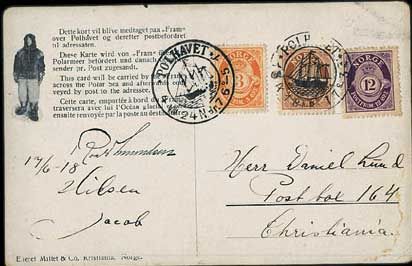 Dette kort vil blive medtaget paa „Fram"
over Polhavet og derefter postbefordret
til adressaten.
Diese Karte wird von „Fram"
Polarmeer befördert und danach
sender pr. Post zugesandt.
This card will be carried by
across the Polar Sea and afterwards
veyed by post to the addressee.
Cette carte, emportée à bord de
traversera avec lui l'Océan glacial
ensuite renvoyée par la poste au destinat
POLHAVET
NORGE
3
NORGE
POLH
NORGE
12
17/6-18
Roald Amundsen
Nilsen
Jacob
Herr Daniel Lund
Postbox 164
Christiania.
Eneret Mittet & Co. Kristiania, Norge.